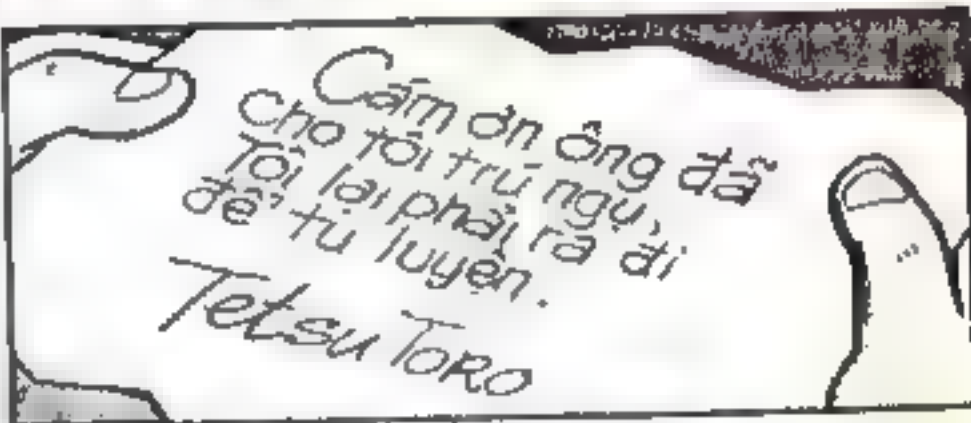 Cám ơn ông đã
Cho tôi trú ngụ,
Tôi lại phải ra đi
để tu luyện.
Tetsu TORO